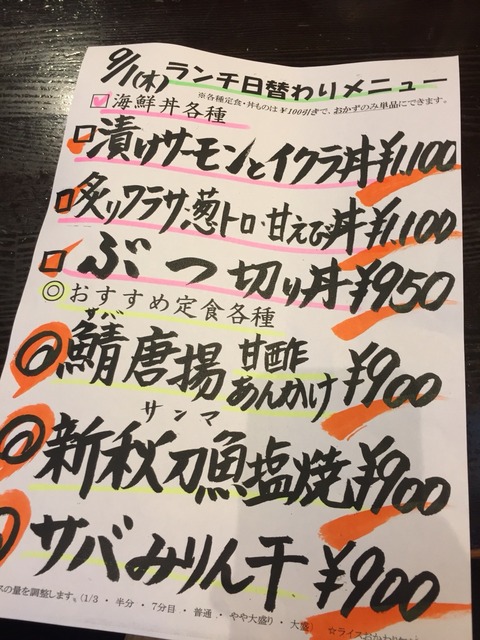 9/1(木)ランチ日替わりメニュー
※各種定食・丼ものは￥100引きで、おかずのみ単品にできます。
海鮮丼各種
漬けサーモンとイクラ丼¥1,100
炙りワラサ、葱トロ・甘えび丼¥1,100
ぶつ切り丼¥950
◎おすすめ定食各種
サバ
◎鯖唐揚甘酢あんかけ¥900
サンマ
◎新秋刀魚塩焼¥900
サバみりん干¥900
スの量を調整します。(1/3・半分・7分目・普通・やや大盛り・大盛)
☆ライスおかわり